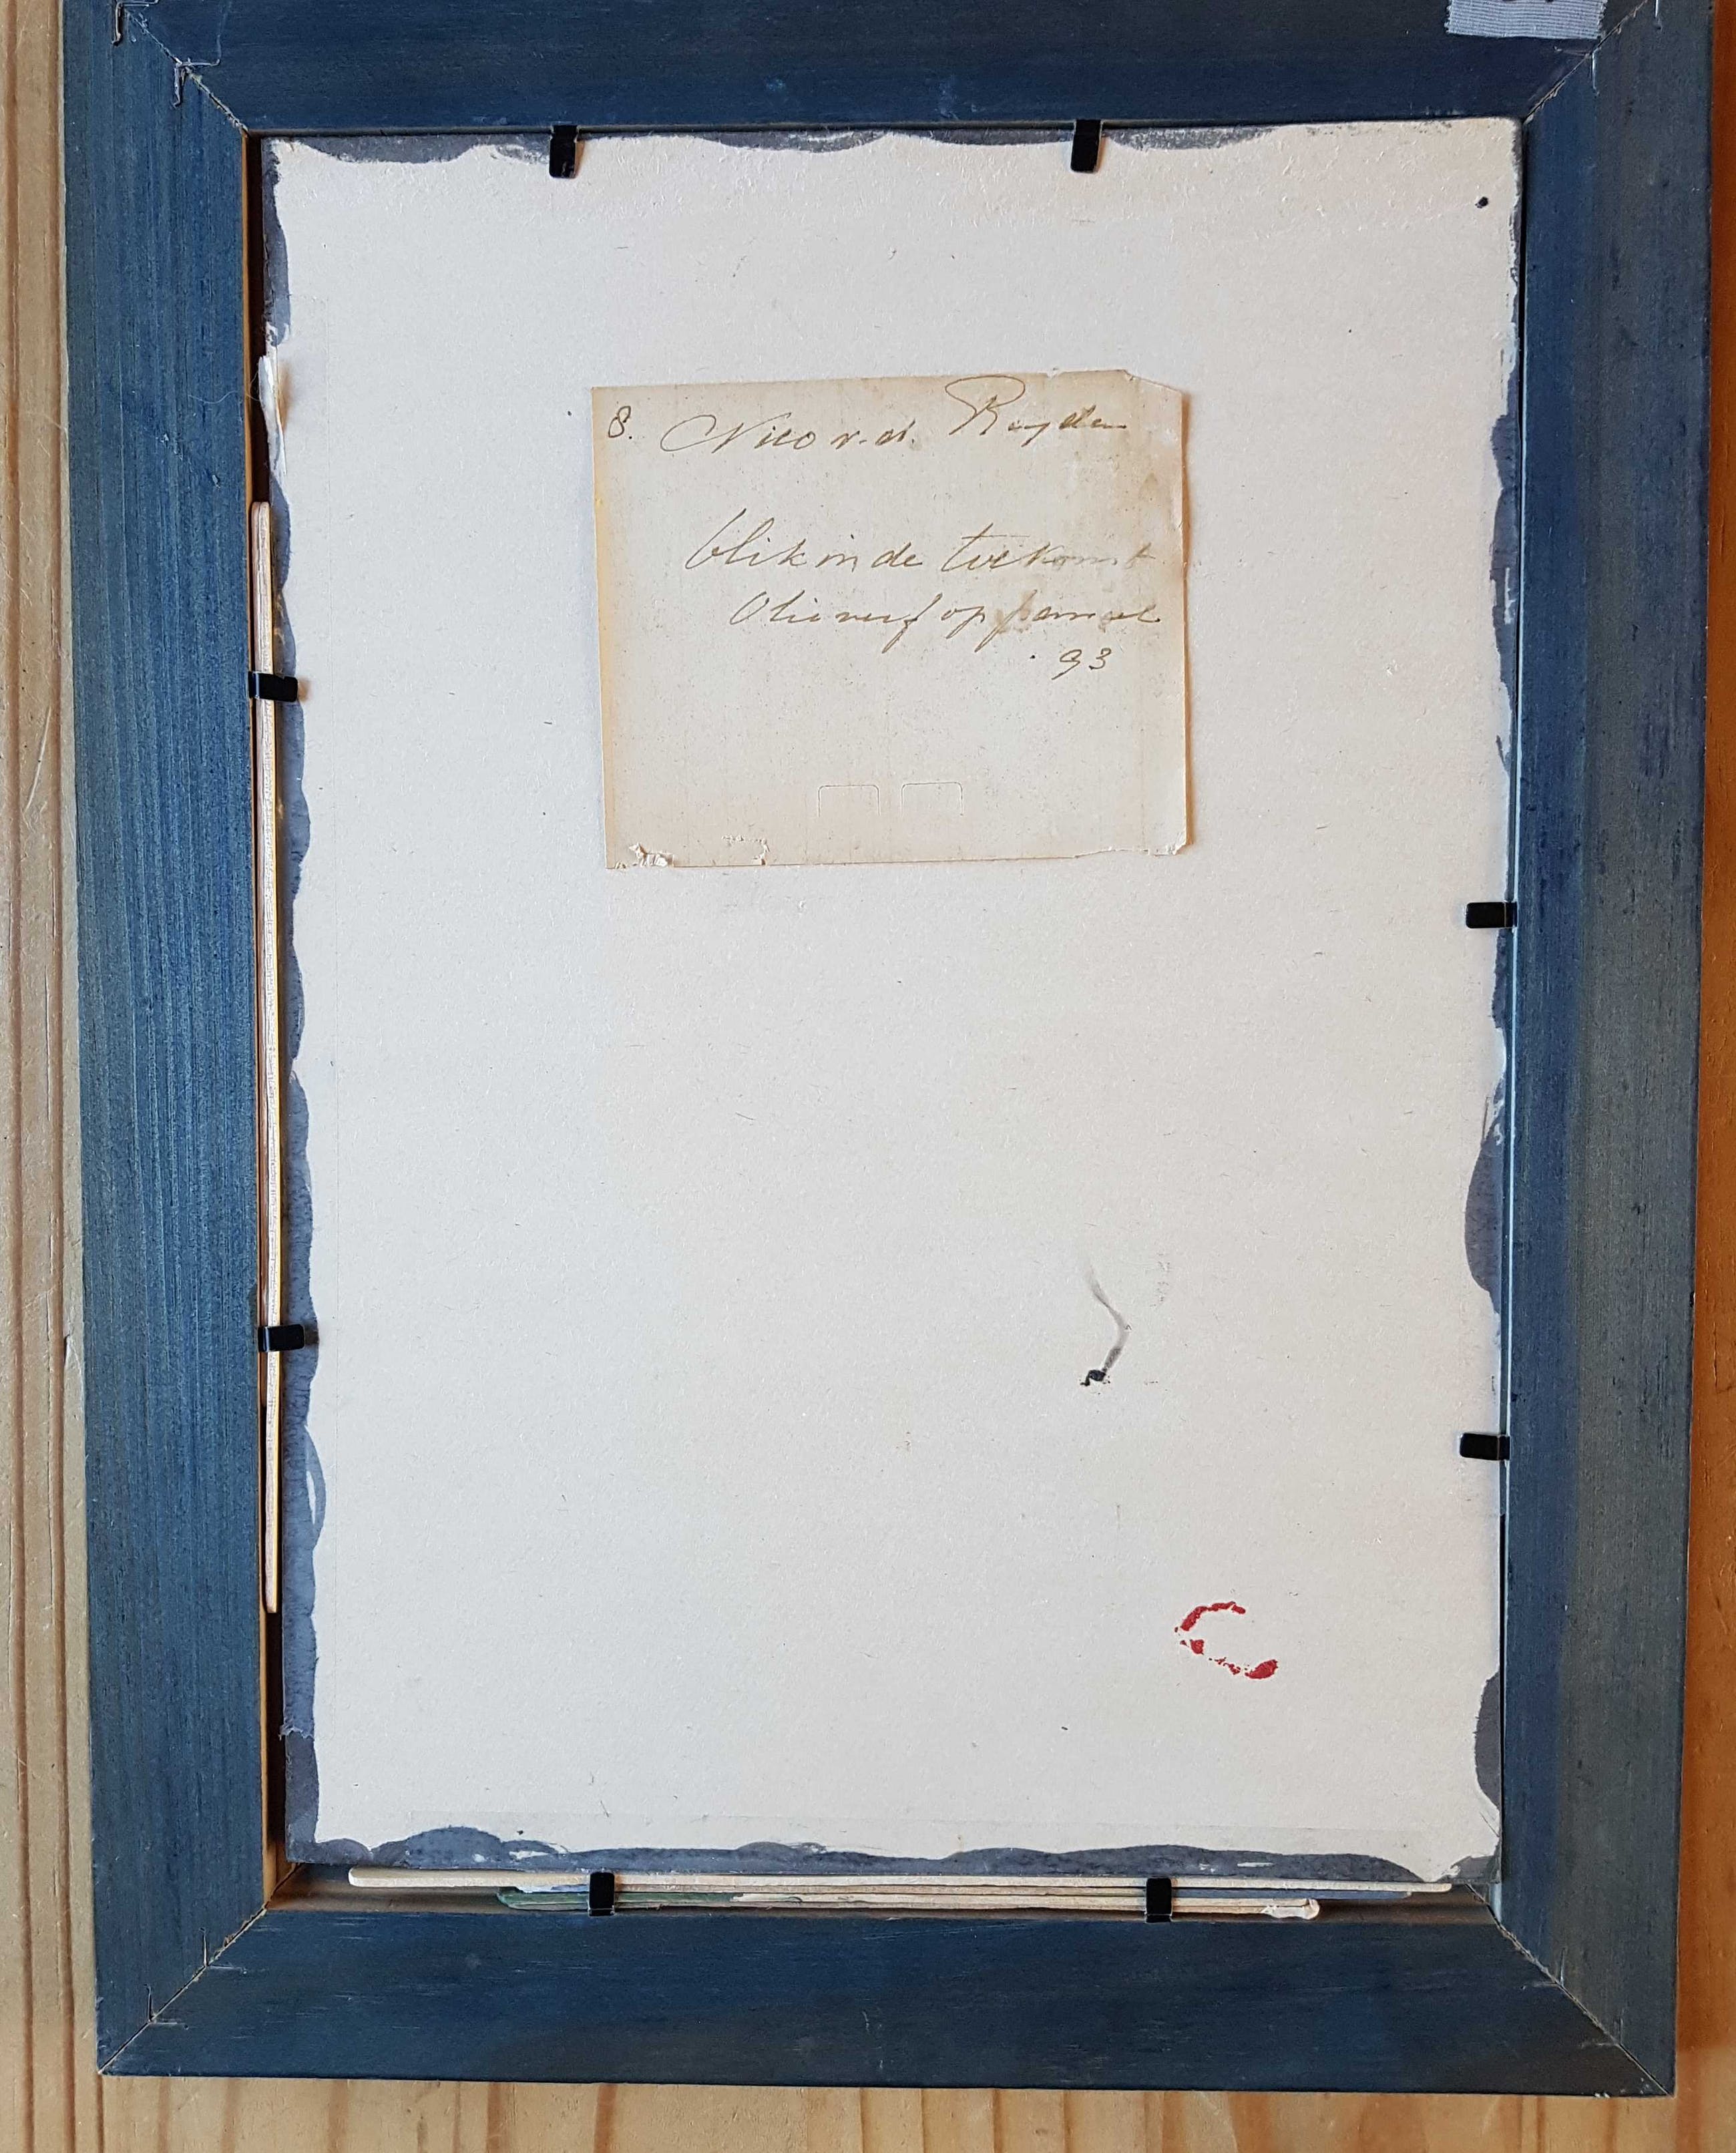 8. Nico v.d. Ruyden
blik in de toekomst
Olieverf op paneel
93